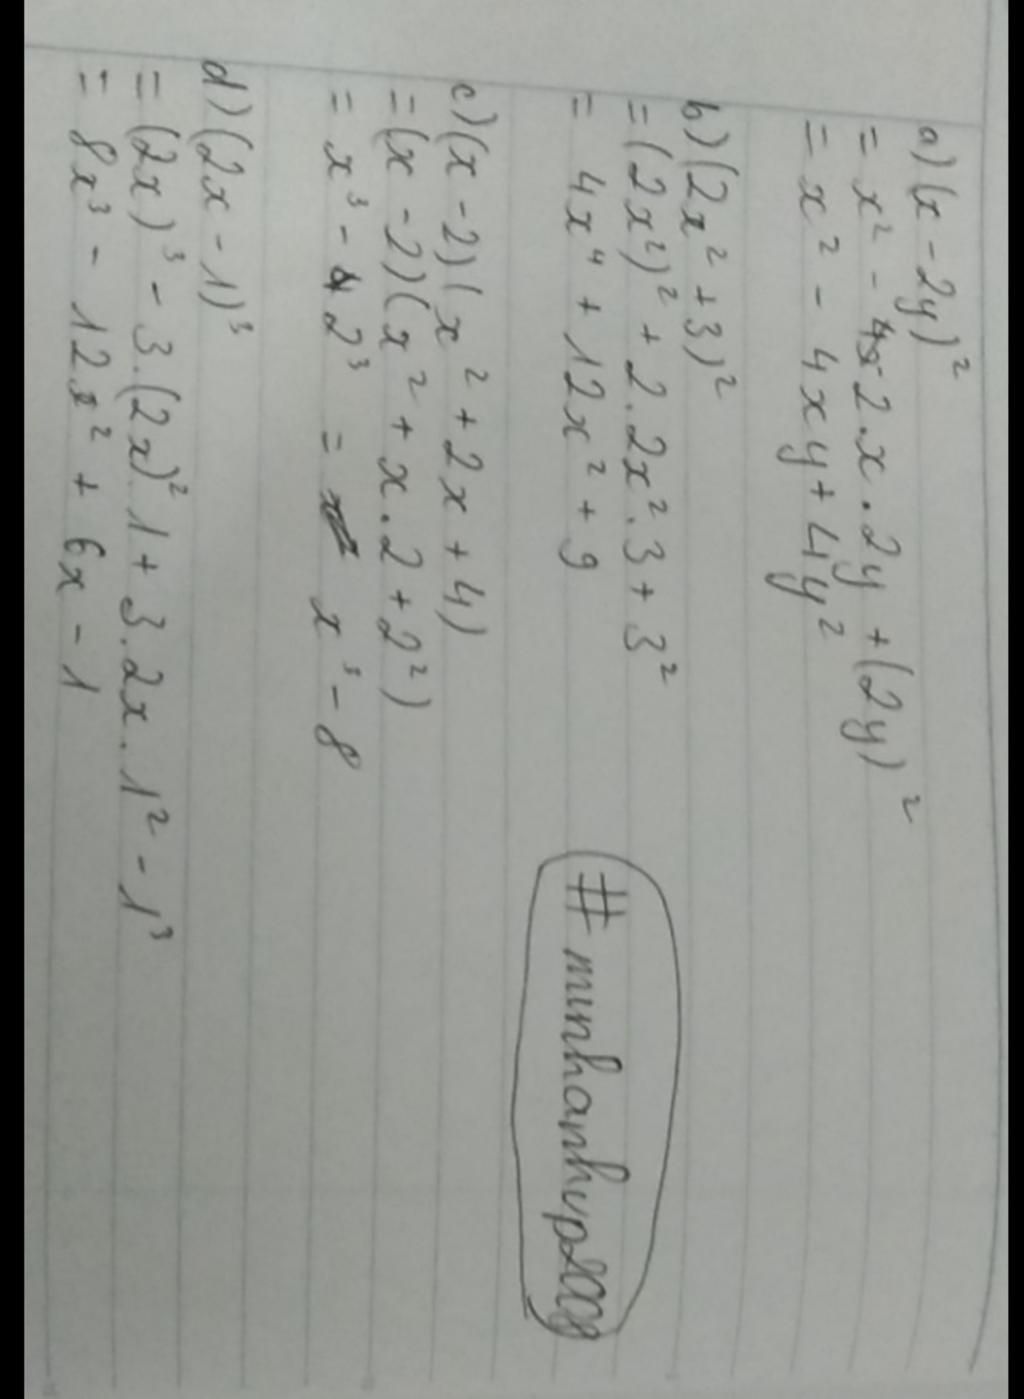 a) (x - 2y)²
= x² - 2.x.2y + (2y)²
= x² - 4xy + 4y²
b) (2x² + 3)²
= (2x²)² + 2.2x².3 + 3²
= 4x⁴ + 12x² + 9
c) (x - 2)(x² + 2x + 4)
= (x - 2)(x² + x.2 + 2²)
= x³ - 2³ = x³ - 8
d) (2x - 1)³
= (2x)³ - 3.(2x)².1 + 3.2x.1² - 1³
= 8x³ - 12x² + 6x - 1
# minhanhvp2008